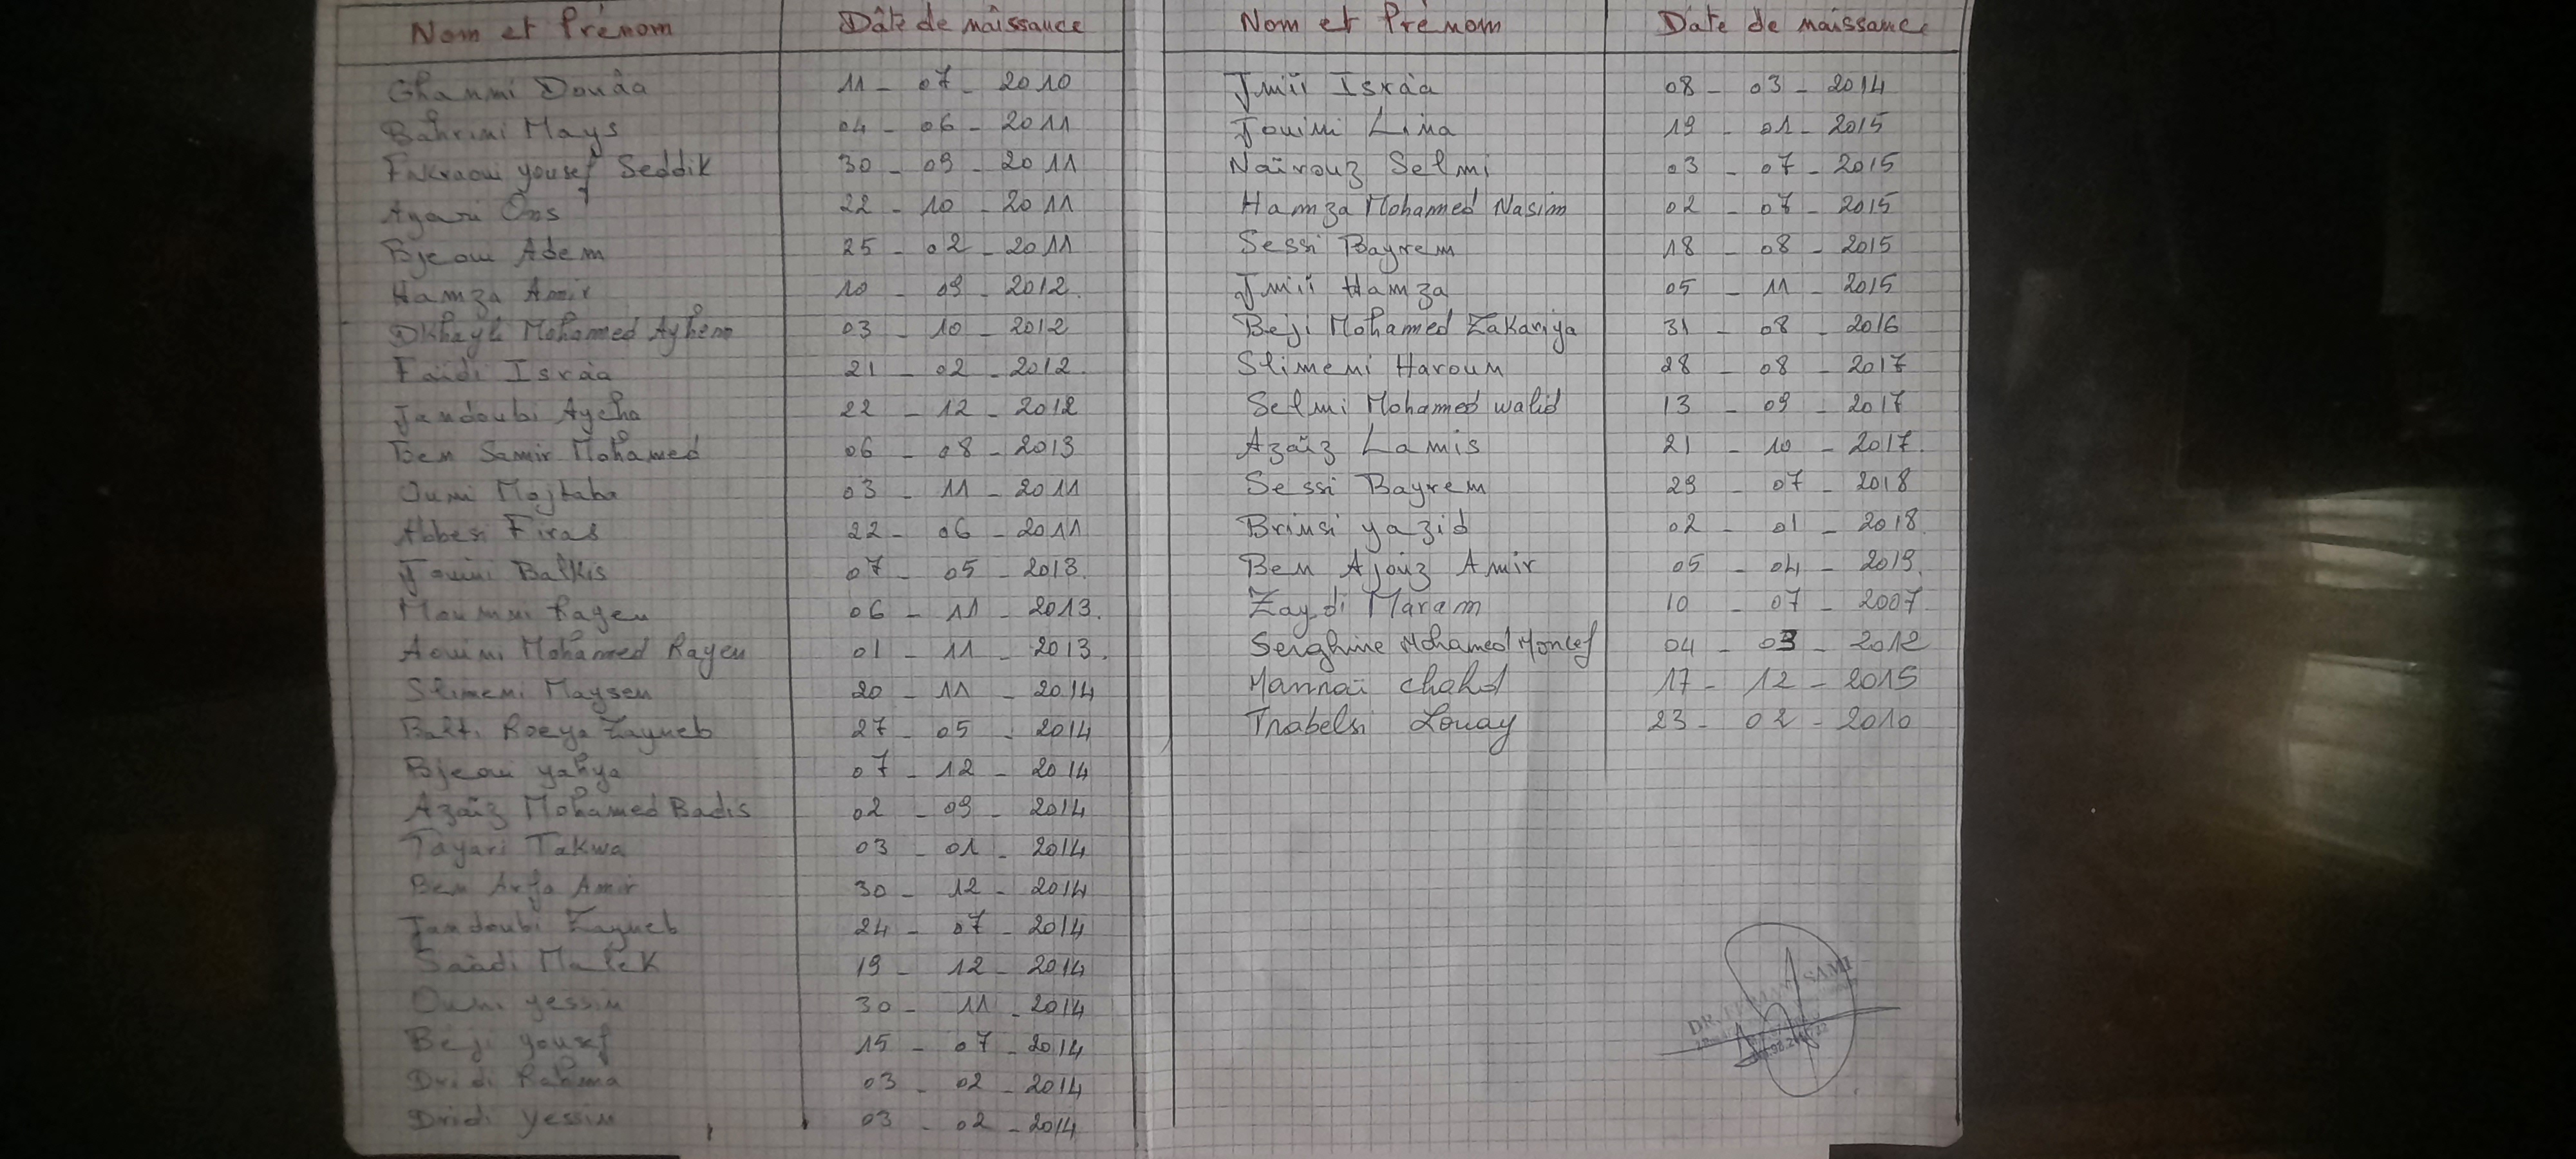 Nom et Prénom Dâte de naissance
Ghanmi Douâa 11 - 07 - 2010
Bahrini Mays 04 - 06 - 2011
Fakraoui yousef Seddik 30 - 09 - 2011
Ayari Ons 22 - 10 - 2011
Bjeoui Adem 25 - 02 - 2011
Hamza Amir 10 - 09 - 2012.
Dkhayli Mohamed Ayhem 03 - 10 - 2012
Faidi Israa 21 - 02 - 2012.
Jandoubi Aycha 22 - 12 - 2012
Ben Samir Mohamed 06 - 08 - 2013
Ouni Mojtaba 03 - 11 - 2011
Abbesi Firas 22 - 06 - 2011
Jouini Balkis 07 - 05 - 2013.
Moumni Rayen 06 - 11 - 2013.
Aouini Mohamed Rayen 01 - 11 - 2013.
Slimeni Maysen 20 - 11 - 2014
Balti Roeya Zayneb 27 - 05 - 2014
Bjeoui yahya 07 - 12 - 2014
Azaïz Mohamed Badis 02 - 09 - 2014
Tayari Takwa 03 - 01 - 2014
Ben Arfa Amir 30 - 12 - 2014
Jandoubi Zayneb 24 - 07 - 2014
Saadi Malek 19 - 12 - 2014
Ouni yessin 30 - 11 - 2014
Beji yousef 15 - 07 - 2014
Dridi Rahma 03 - 02 - 2014
Dridi yessin 03 - 02 - 2014
Nom et Prénom Date de naissance
Jmiï Israa 08 - 03 - 2014
Jouini Lina 19 - 01 - 2015
Naïrouz Selmi 03 - 07 - 2015
Hamza Mohammed Nasim 02 - 07 - 2015
Sessi Bayrem 18 - 08 - 2015
Jmiï Hamza 05 - 11 - 2015
Beji Mohamed Zakariya 31 - 08 - 2016
Slimeni Haroun 28 - 08 - 2017
Selmi Mohamed walid 13 - 09 - 2017
Azaïz Lamis 21 - 10 - 2017.
Sessi Bayrem 29 - 07 - 2018
Brinsi yazid 02 - 01 - 2018.
Ben Ajouz Amir 05 - 04 - 2019.
Zaydi Maram 10 - 07 - 2007
Serghine Mohamed Moncef 04 - 03 - 2012
Mannaï chahd 17 - 12 - 2015
Trabelsi Louay 23 - 02 - 2010
DR. SAMI